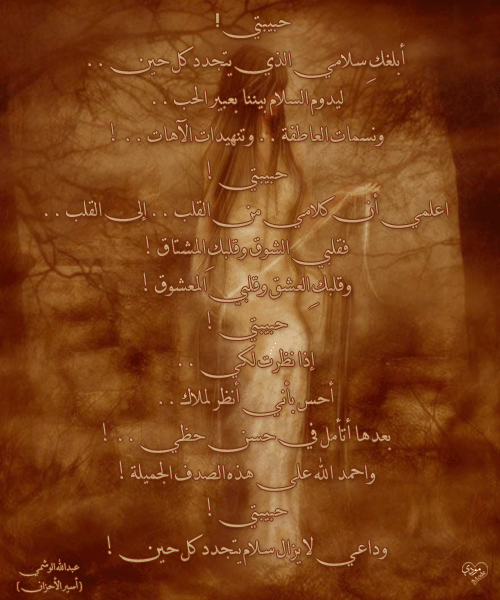 حبيبتي !
أبلغكِ سلامي الذي يتجدد كل حين . .
ليدوم السلام بيننا بعبير الحب . .
ونسمات العاطفة . . وتنهيدات الآهات . . !
حبيبتي !
اعلمي أن كلامي من القلب . . إلى القلب . .
فقلبي الشوق وقلبكِ المشتاق !
وقلبكِ العشق وقلبي المعشوق !
حبيبتي !
إذا نظرت لكي . .
أحس بأني أنظر لملاك . .
بعدها أتأمل في حسن حظي . . !
واحمد الله على هذه الصدف الجميلة !
حبيبتي !
وداعي لا يزال سلام يتجدد كل حين !
عبدالله الوشمي
( أسير الأحزان )
مودي